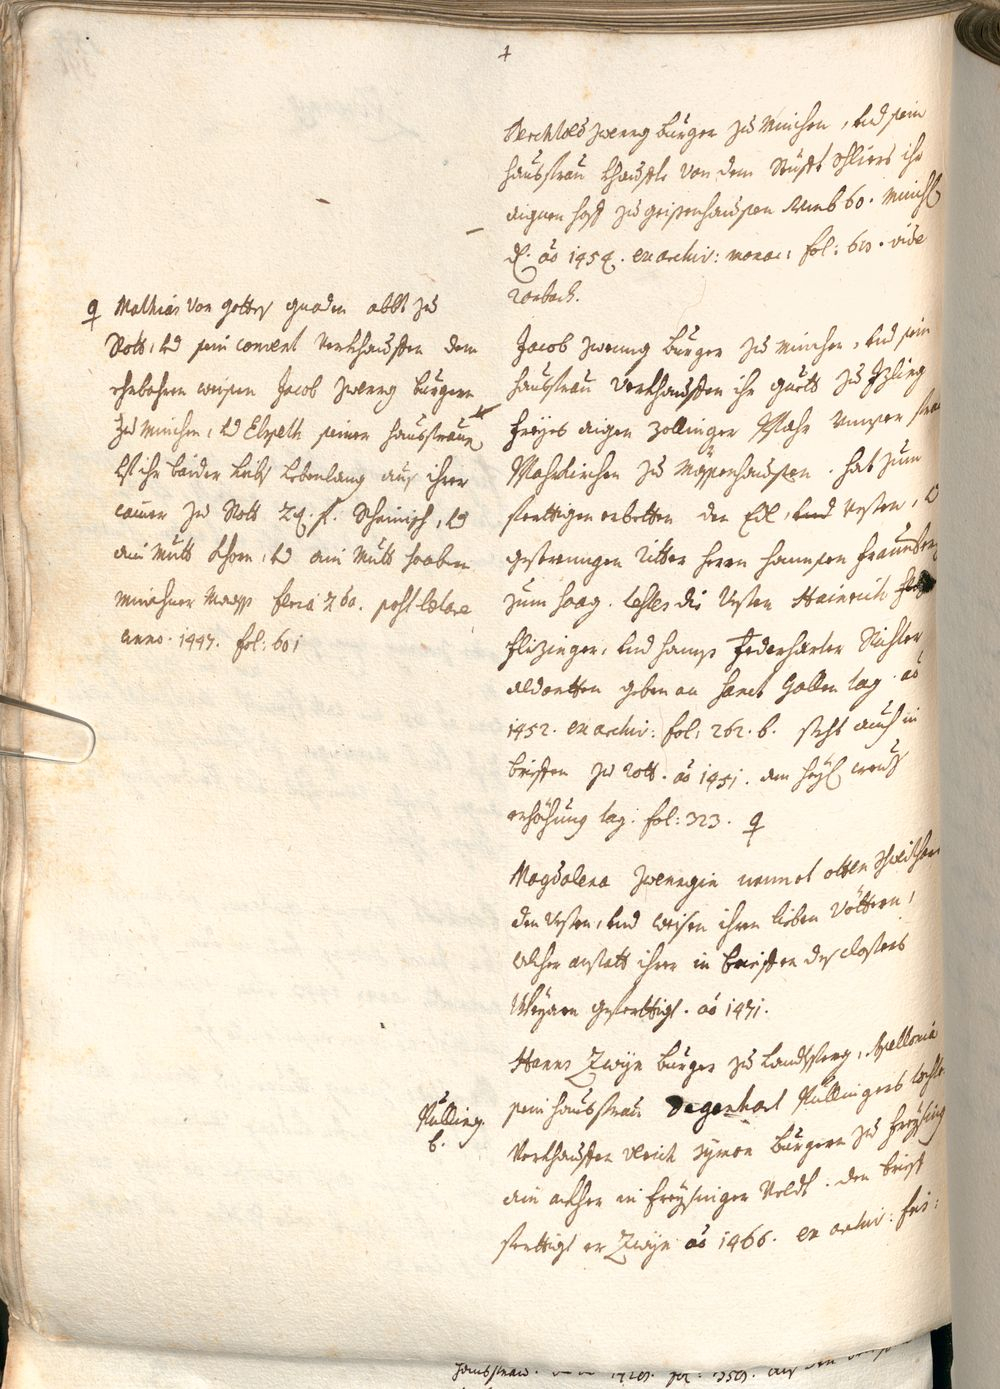 Berchtold Zwenng Burger zu München, und sein
hausfrau khaufft von dem Stüfft Schliers ihr
aignen hoff zu Geisenhausen umb 60. Münch.
d. ao 1454. ex archiv: monac: fol: 60. vide
Rorbach.
Jacob Zwenng Burger zu München, und sein
hausfrau verkhaufften ihr guett zu Izling
freyes aigen Zollinger Pfahr unnser frau
Pfahrkirchen zu Massenhausen. hat zum
ferttigen erbetten den Edl, Vesten,
gestrenngen Ritter herrn hannsen Fraunberg
zum haag. testes die Vesten Hainrich
Flizinger, und hanns Federharter Richter
aldortten geben an Sanct Gallen tag. ao
1452. ex archiv: fol: 262. b. steht auch in
brieffen zu Rott. ao 1451. am heyl. creuz
erhöhung tag. fol: 323. ♀
Magdalena Zwenngin nennet otten
den Vesten, und weisen ihren lieben Vöttern,
welcher anstatt ihrer in brieffen des closters
Weyarn geferttigt. ao 1471.
Hanns Zwijn burger zu Landsperg, Apellonia
sein hausfrau Degenhart Pullingers tochter
verkhauffen Ulrich Symon Burgern zu Freysing
ain akher in Freysinger Veldt. den brieff
ferttigt er Zwijn ao 1466. ex archiv: fris:
♀ Mathias von Gottes gnaden abbt zu
Rott, und sein convent verkhauffen dem
ehrbahren weisen Jacob Zwenng burgern
zu München, und Elspeth seiner hausfrauen
uf ihr baider leibs lebenlang aus ihrer
camer zu Rott 24. fl. Rheinisch, und
ain Mutt khorn, und ain Mutt haabern
Münchner Maass feria 2da. post laetare
anno. 1447. fol: 601
Pulling.
b.
hausfrau. fol: 359.